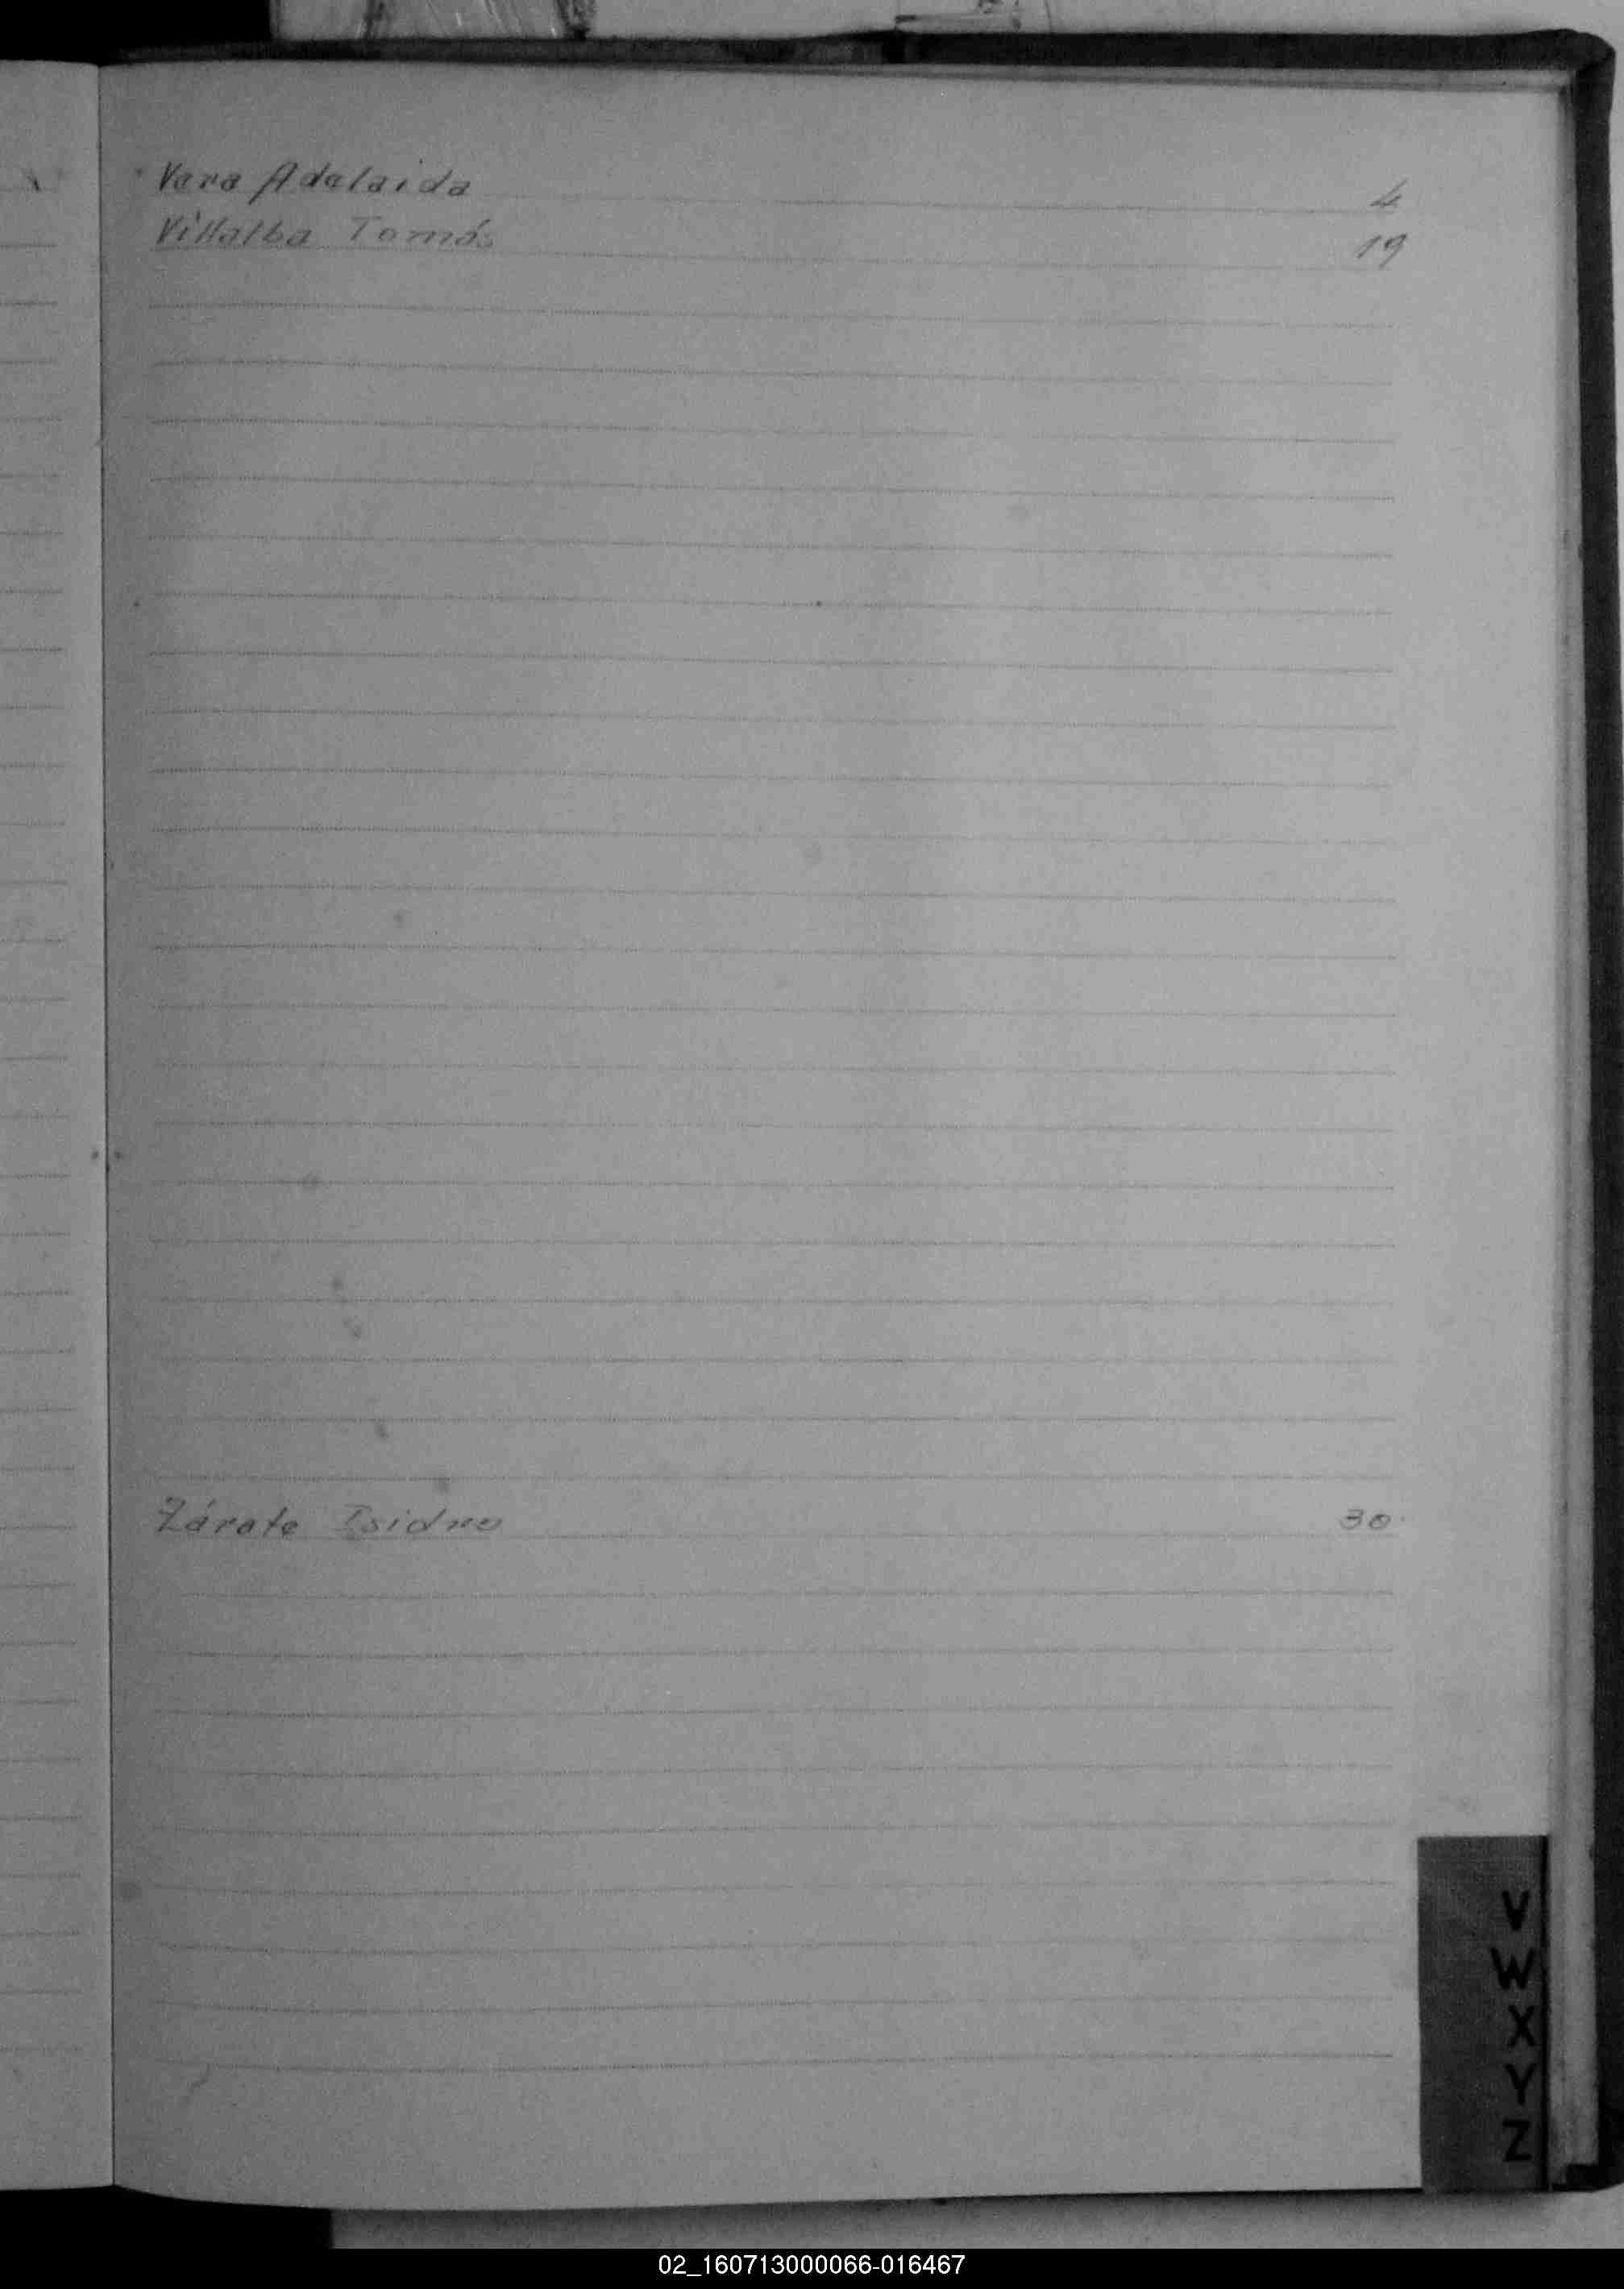 Vera Adelaida 4
Villalba Tomás 19
Zárate Isidro 30
V
W
X
Y
Z
02_160713000066-016467